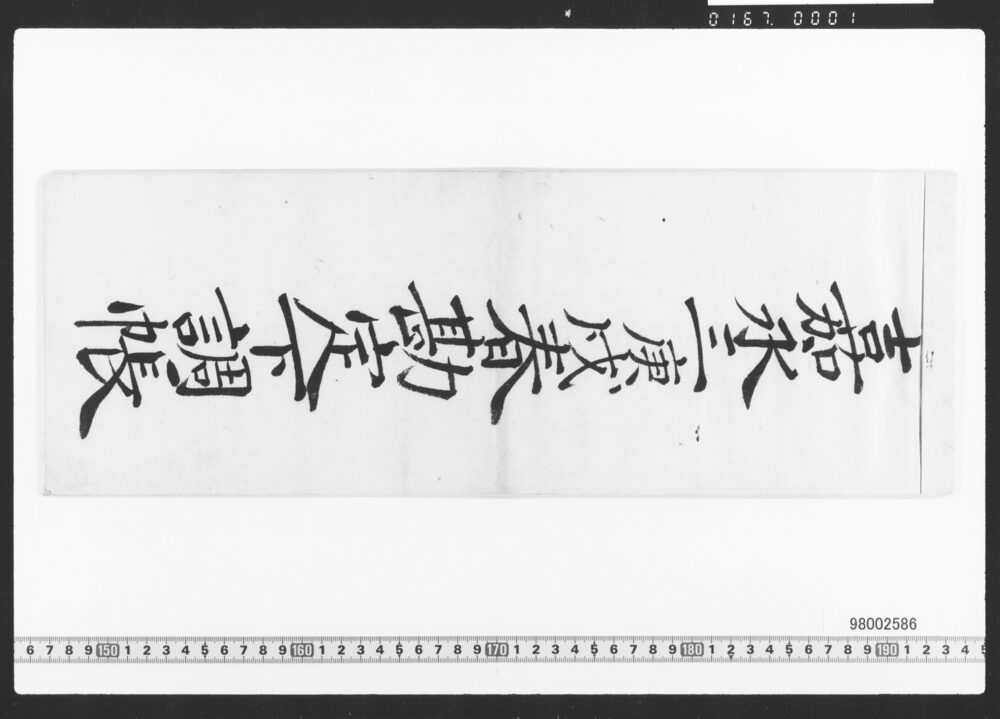 0167. 0001
嘉永三庚戌春勘定下調帳
98002586
6 7 8 9 150 1 2 3 4 5 6 7 8 9 160 1 2 3 4 5 6 7 8 9 170 1 2 3 4 5 6 7 8 9 180 1 2 3 4 5 6 7 8 9 190 1 2 3 4 5